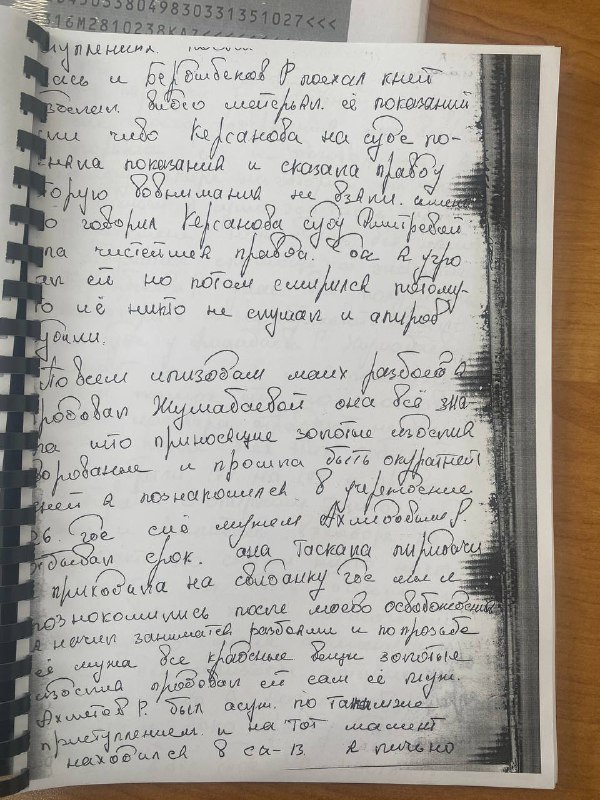 04503380498303313 51027<<<
316M2810238KAZ<<<<
уплениях.
лась и Бердибеков Р поехал кней
зделал видео матерьял её показаний
чево Керсанова на суде по-
няла показания и сказала правду
торую вовнимания не взяли.
о говорил Керсанова суду
ла чистейшея правда. да я угро
ал ей но потом смирился потому
о её никто не слушал и
удили.
По всем эпизодам моих разбоев я
продовал Жумабаевой она всё зна
ла што приносящие золотые изделия
ворованые и просила быть окуратней
с ней я познакомился в учреждение
26. где сиё мужем
отбывал срок. она таскала пиридачи
приходила на свиданку где мы и
познокомились после моево освобождения
я начил заниматся разбоями и по прозьбе
её мужа все краденые вещи золотые
изделия продовал ей сам её муж.
Ахметов Р. был асуж. по таким же
приступлениям. и на тот мамент
находился в са-13. я лично